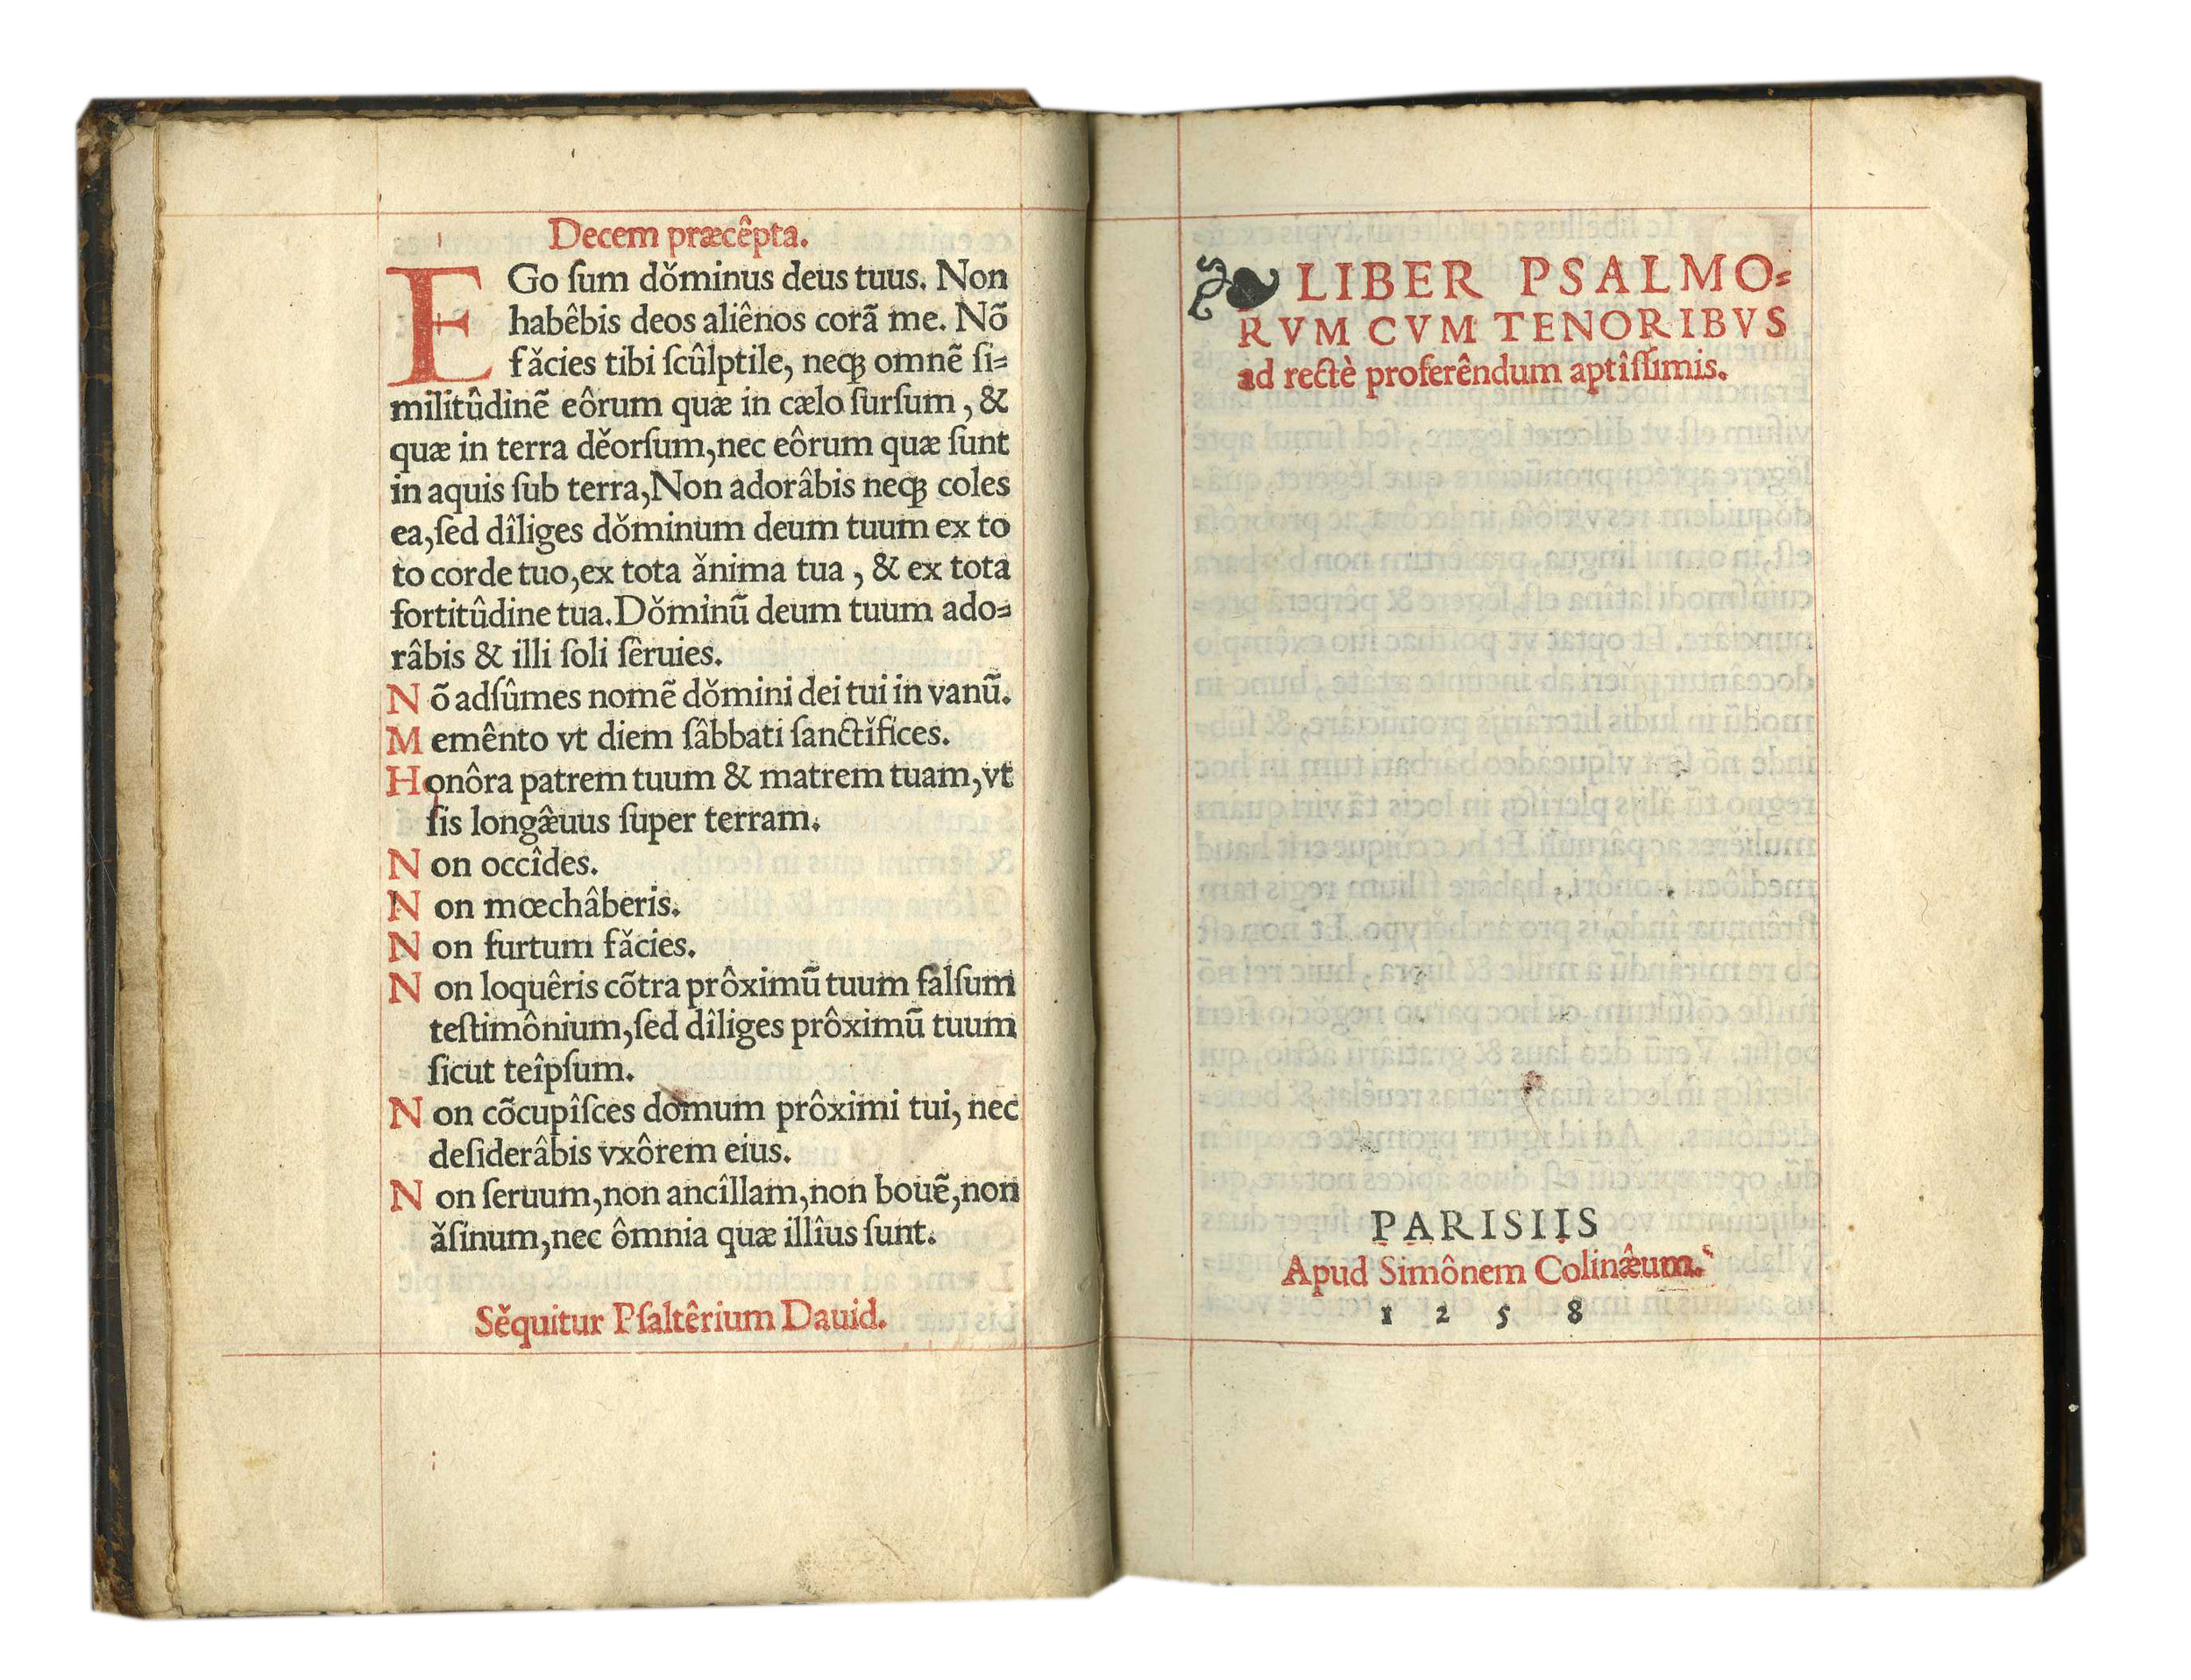 Decem præcêpta.
EGo ſum dǒminus deus tuus. Non
habêbis deos aliênos corã me. Nõ
fǎcies tibi ſcûlptile, neqꝫ omnẽ ſi⸗
militûdinẽ eôrum quæ in cælo ſurſum, &
quæ in terra děorſum, nec eôrum quæ ſunt
in aquis ſub terra, Non adorâbis neqꝫ coles
ea, ſed dîliges dǒminum deum tuum ex to
to corde tuo, ex tota ǎnima tua, & ex tota
fortitûdine tua. Dǒminũ deum tuum ado⸗
râbis & illi ſoli ſêruies.
Nõ adſûmes nomẽ dǒmini dei tui in vanũ.
Memênto vt diem ſâbbati ſanctǐfices.
Honôra patrem tuum & matrem tuam, vt
ſis longæ̂uus ſuper terram.
Non occîdes.
Non mœchâberis.
Non furtum fǎcies.
Non loquêris cõtra prôximũ tuum falſum
teſtimônium, ſed dîliges prôximũ tuum
ſicut teîpſum.
Non cõcupîſces domum prôximi tui, nec
deſiderâbis vxôrem eius.
Non ſeruum, non ancîllam, non bouẽ, non
ǎſinum, nec ômnia quæ illîus ſunt.
Sěquitur Pſaltêrium Dauid.
LIBER PSALMO⸗
RVM CVM TENORIBVS
ad rectè proferêndum aptîſſimis.
PARISIIS
Apud Simônem Colinæ̂um.
1 2 5 8